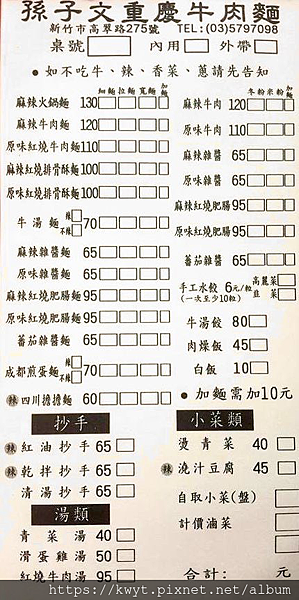 孫子文重慶牛肉麵
新竹市高翠路275號 TEL:(03)5797098
桌號 內用 外帶
• 如不吃牛、辣、香菜、蔥請先告知
細麵 拉麵 寬麵 加麵
麻辣火鍋麵 130
麻辣牛肉麵 120
原味牛肉麵 110
麻辣紅燒排骨酥麵 100
原味紅燒排骨酥麵 100
牛湯麵 辣 不辣 70
麻辣雜醬麵 65
原味雜醬麵 65
麻辣紅燒肥腸麵 95
原味紅燒肥腸麵 95
蕃茄雜醬麵 65
成都煎蛋麵 辣 不辣 70
辣 四川擔擔麵 60
抄手
辣 紅油抄手 65
辣 乾拌抄手 65
清湯抄手 65
湯類
青菜湯 40
滑蛋雞湯 50
紅燒牛肉湯 95
冬粉 米粉 加麵
麻辣牛肉 120
原味牛肉 110
麻辣雜醬 65
原味雜醬 65
麻辣紅燒肥腸 95
原味紅燒肥腸 95
蕃茄雜醬 65
手工水餃 6元/粒 高麗菜 韭菜
(一次至少10粒)
牛湯餃 80
肉燥飯 45
白飯 10
• 加麵需加10元
小菜類
燙青菜 40
辣 澆汁豆腐 45
自取小菜(盤)
計價滷菜
合計: 元
https://kwyt.pixnet.net/album